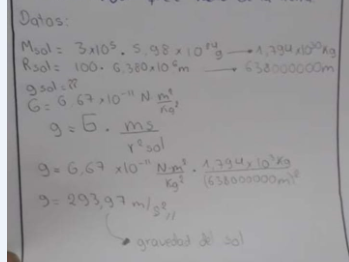 Datos:
Msol = 3x10³ · 5,98 x 10²⁴g → 1,794x10³⁰ Kg
Rsol = 100 · 6,380x10⁶m → 638000000m
gsol = ??
G = 6,67 x 10⁻¹¹ N · m²/Kg²
g = G · ms/r²sol
g = 6,67 x10⁻¹¹ N·m²/Kg² · 1,794 x 10³⁰Kg/(638000000m)²
g = 293,97 m/s²//
gravedad del sol